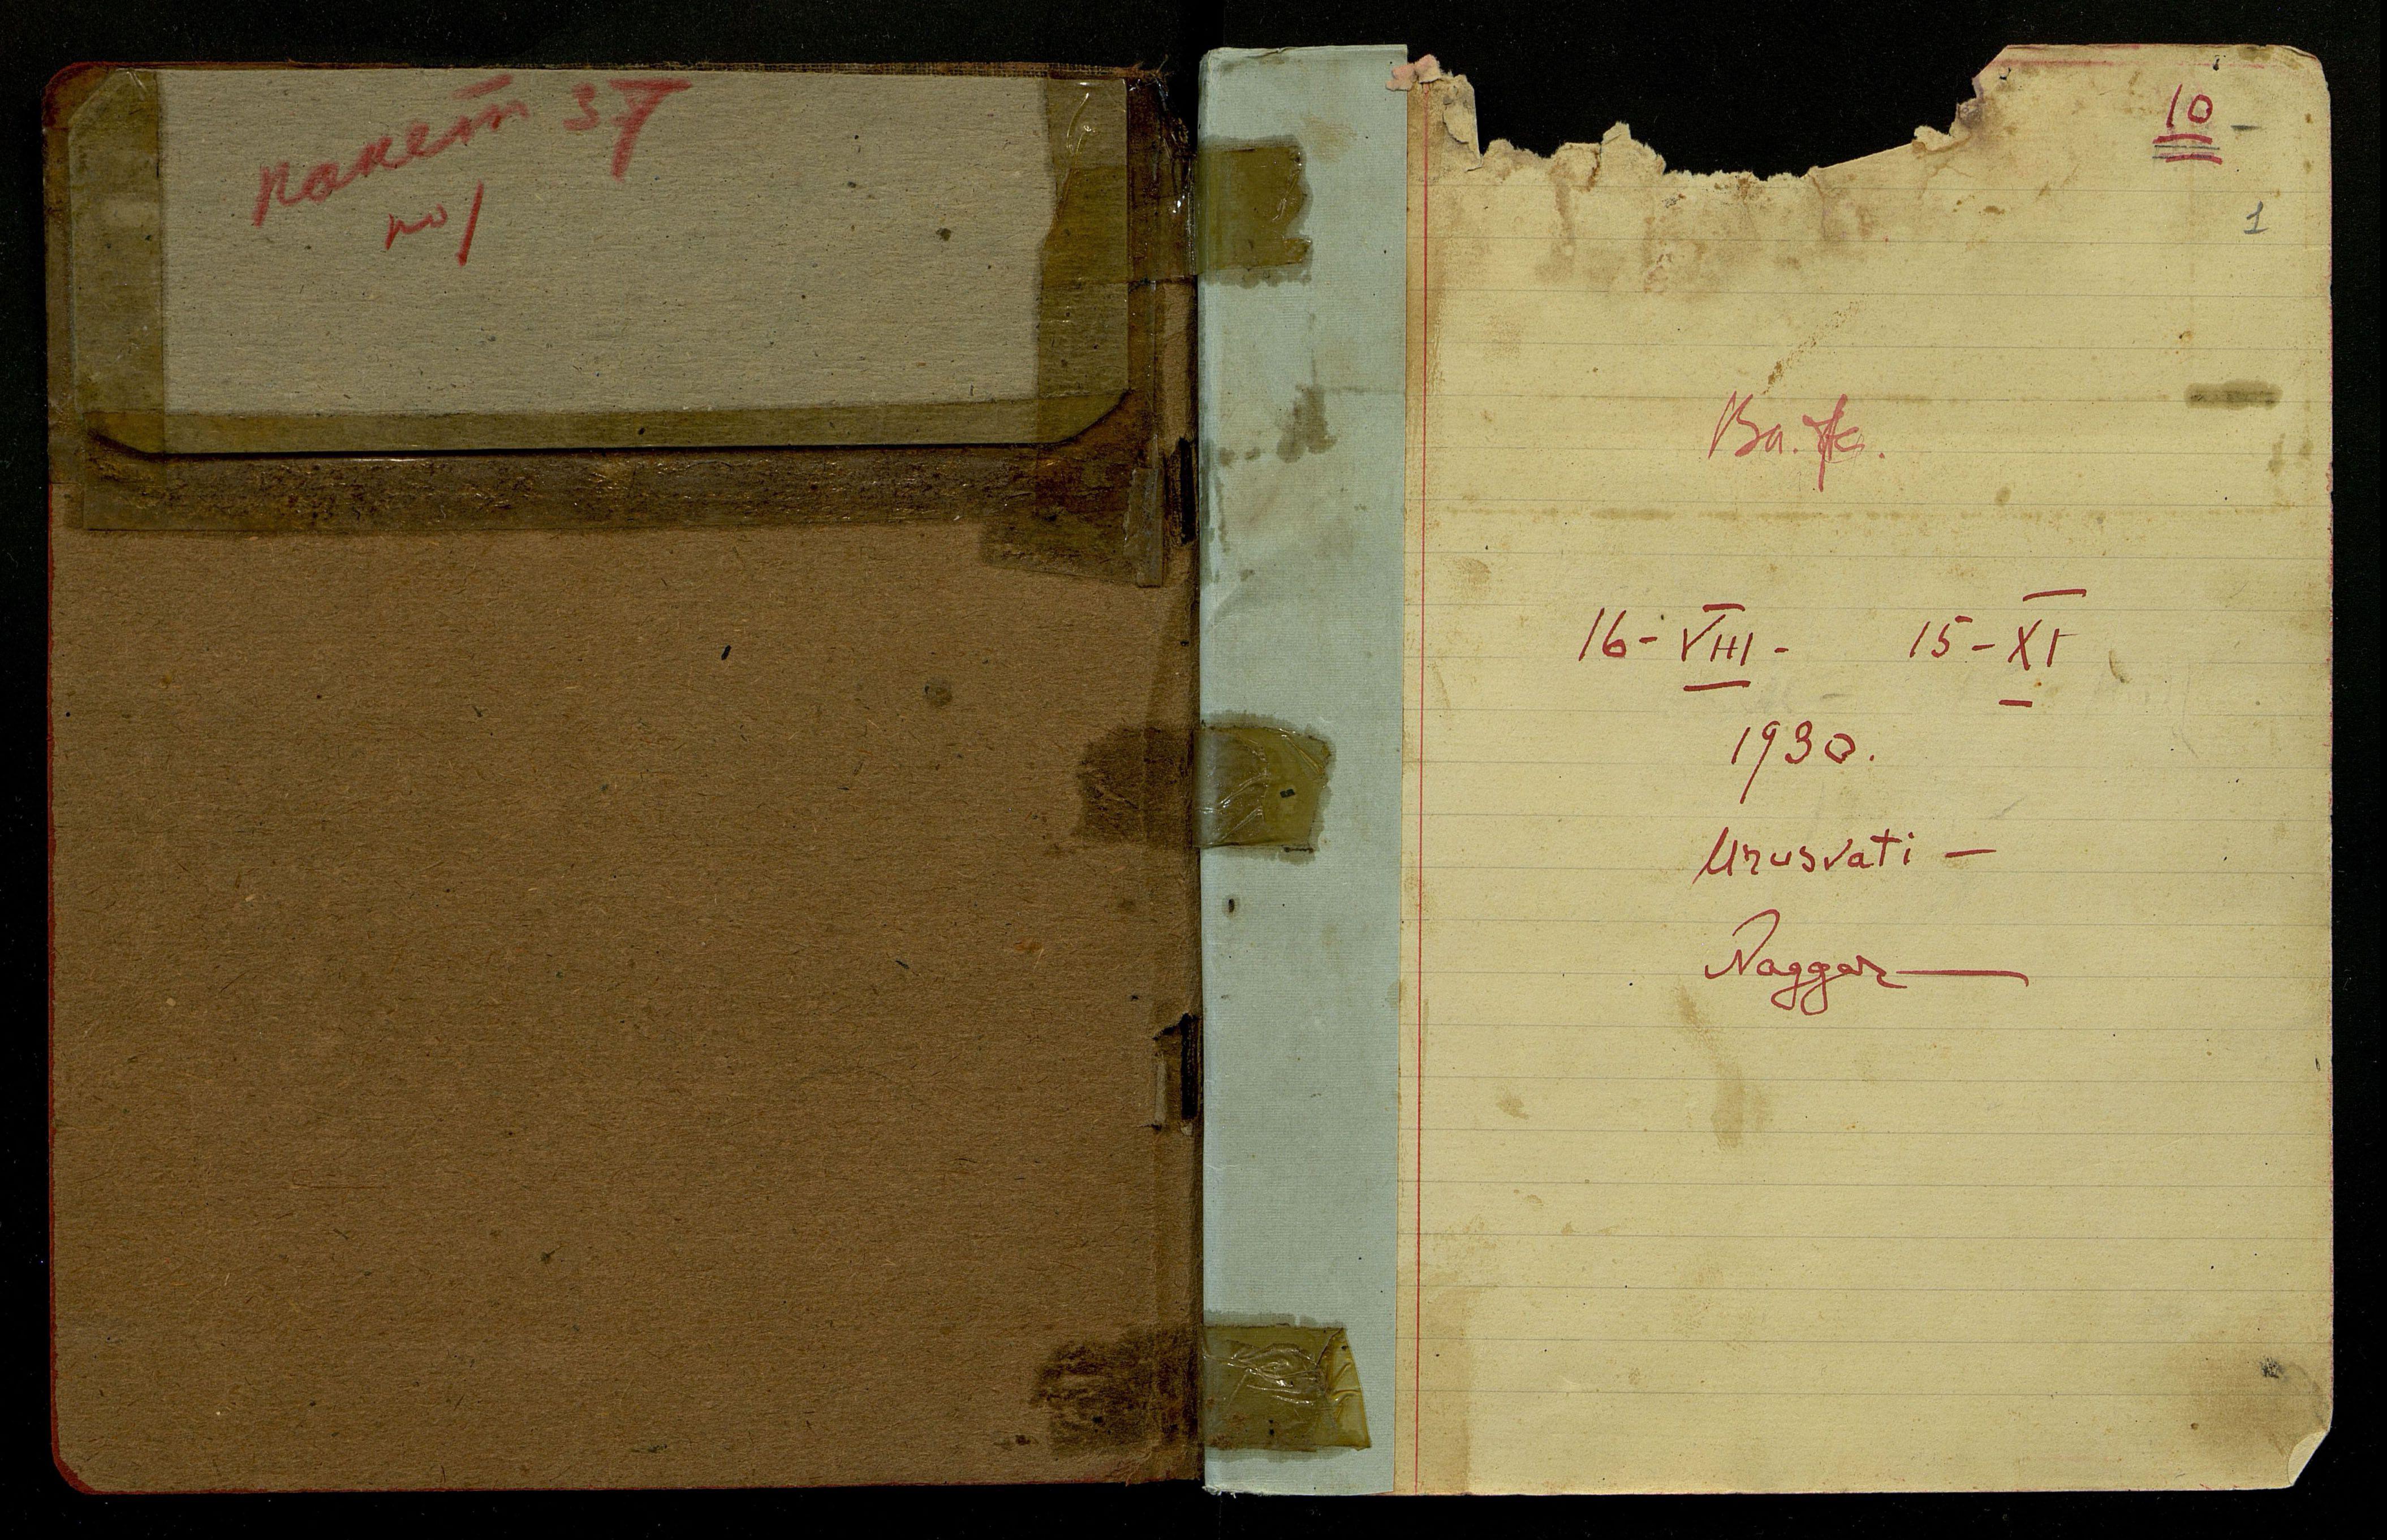 пакет 37
no 1
10
1
Ba.
16 - VIII - 15 - XI
1930.
Urusvati —
Naggar —